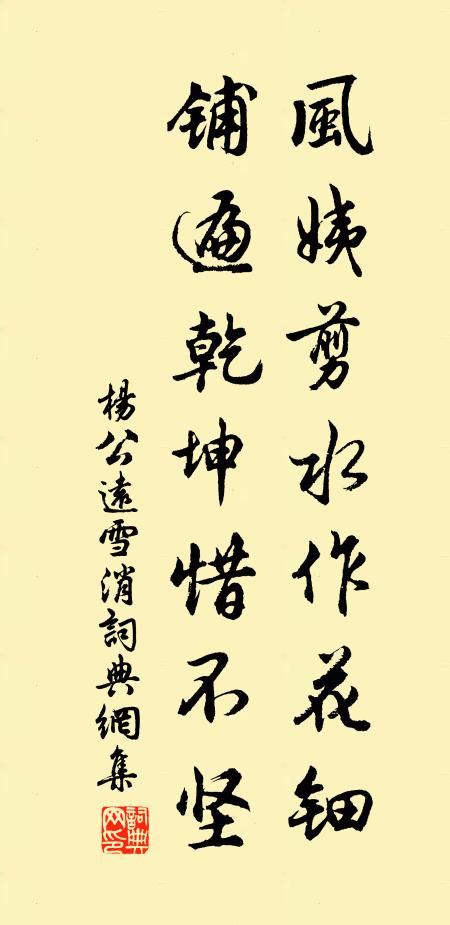 風姨剪水作花鈿
鋪遍乾坤惜不坚
楊公遠雪消詞典網集
詞典網印